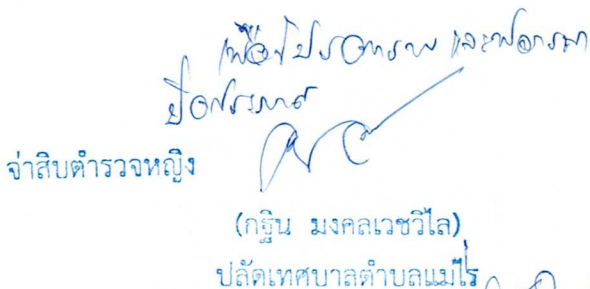 เพื่อโปรดทราบ และพิจารณา
จ่าสิบตำรวจหญิง
(กฐิน มงคลเวชวิไล)
ปลัดเทศบาลตำบลแม่ไร่